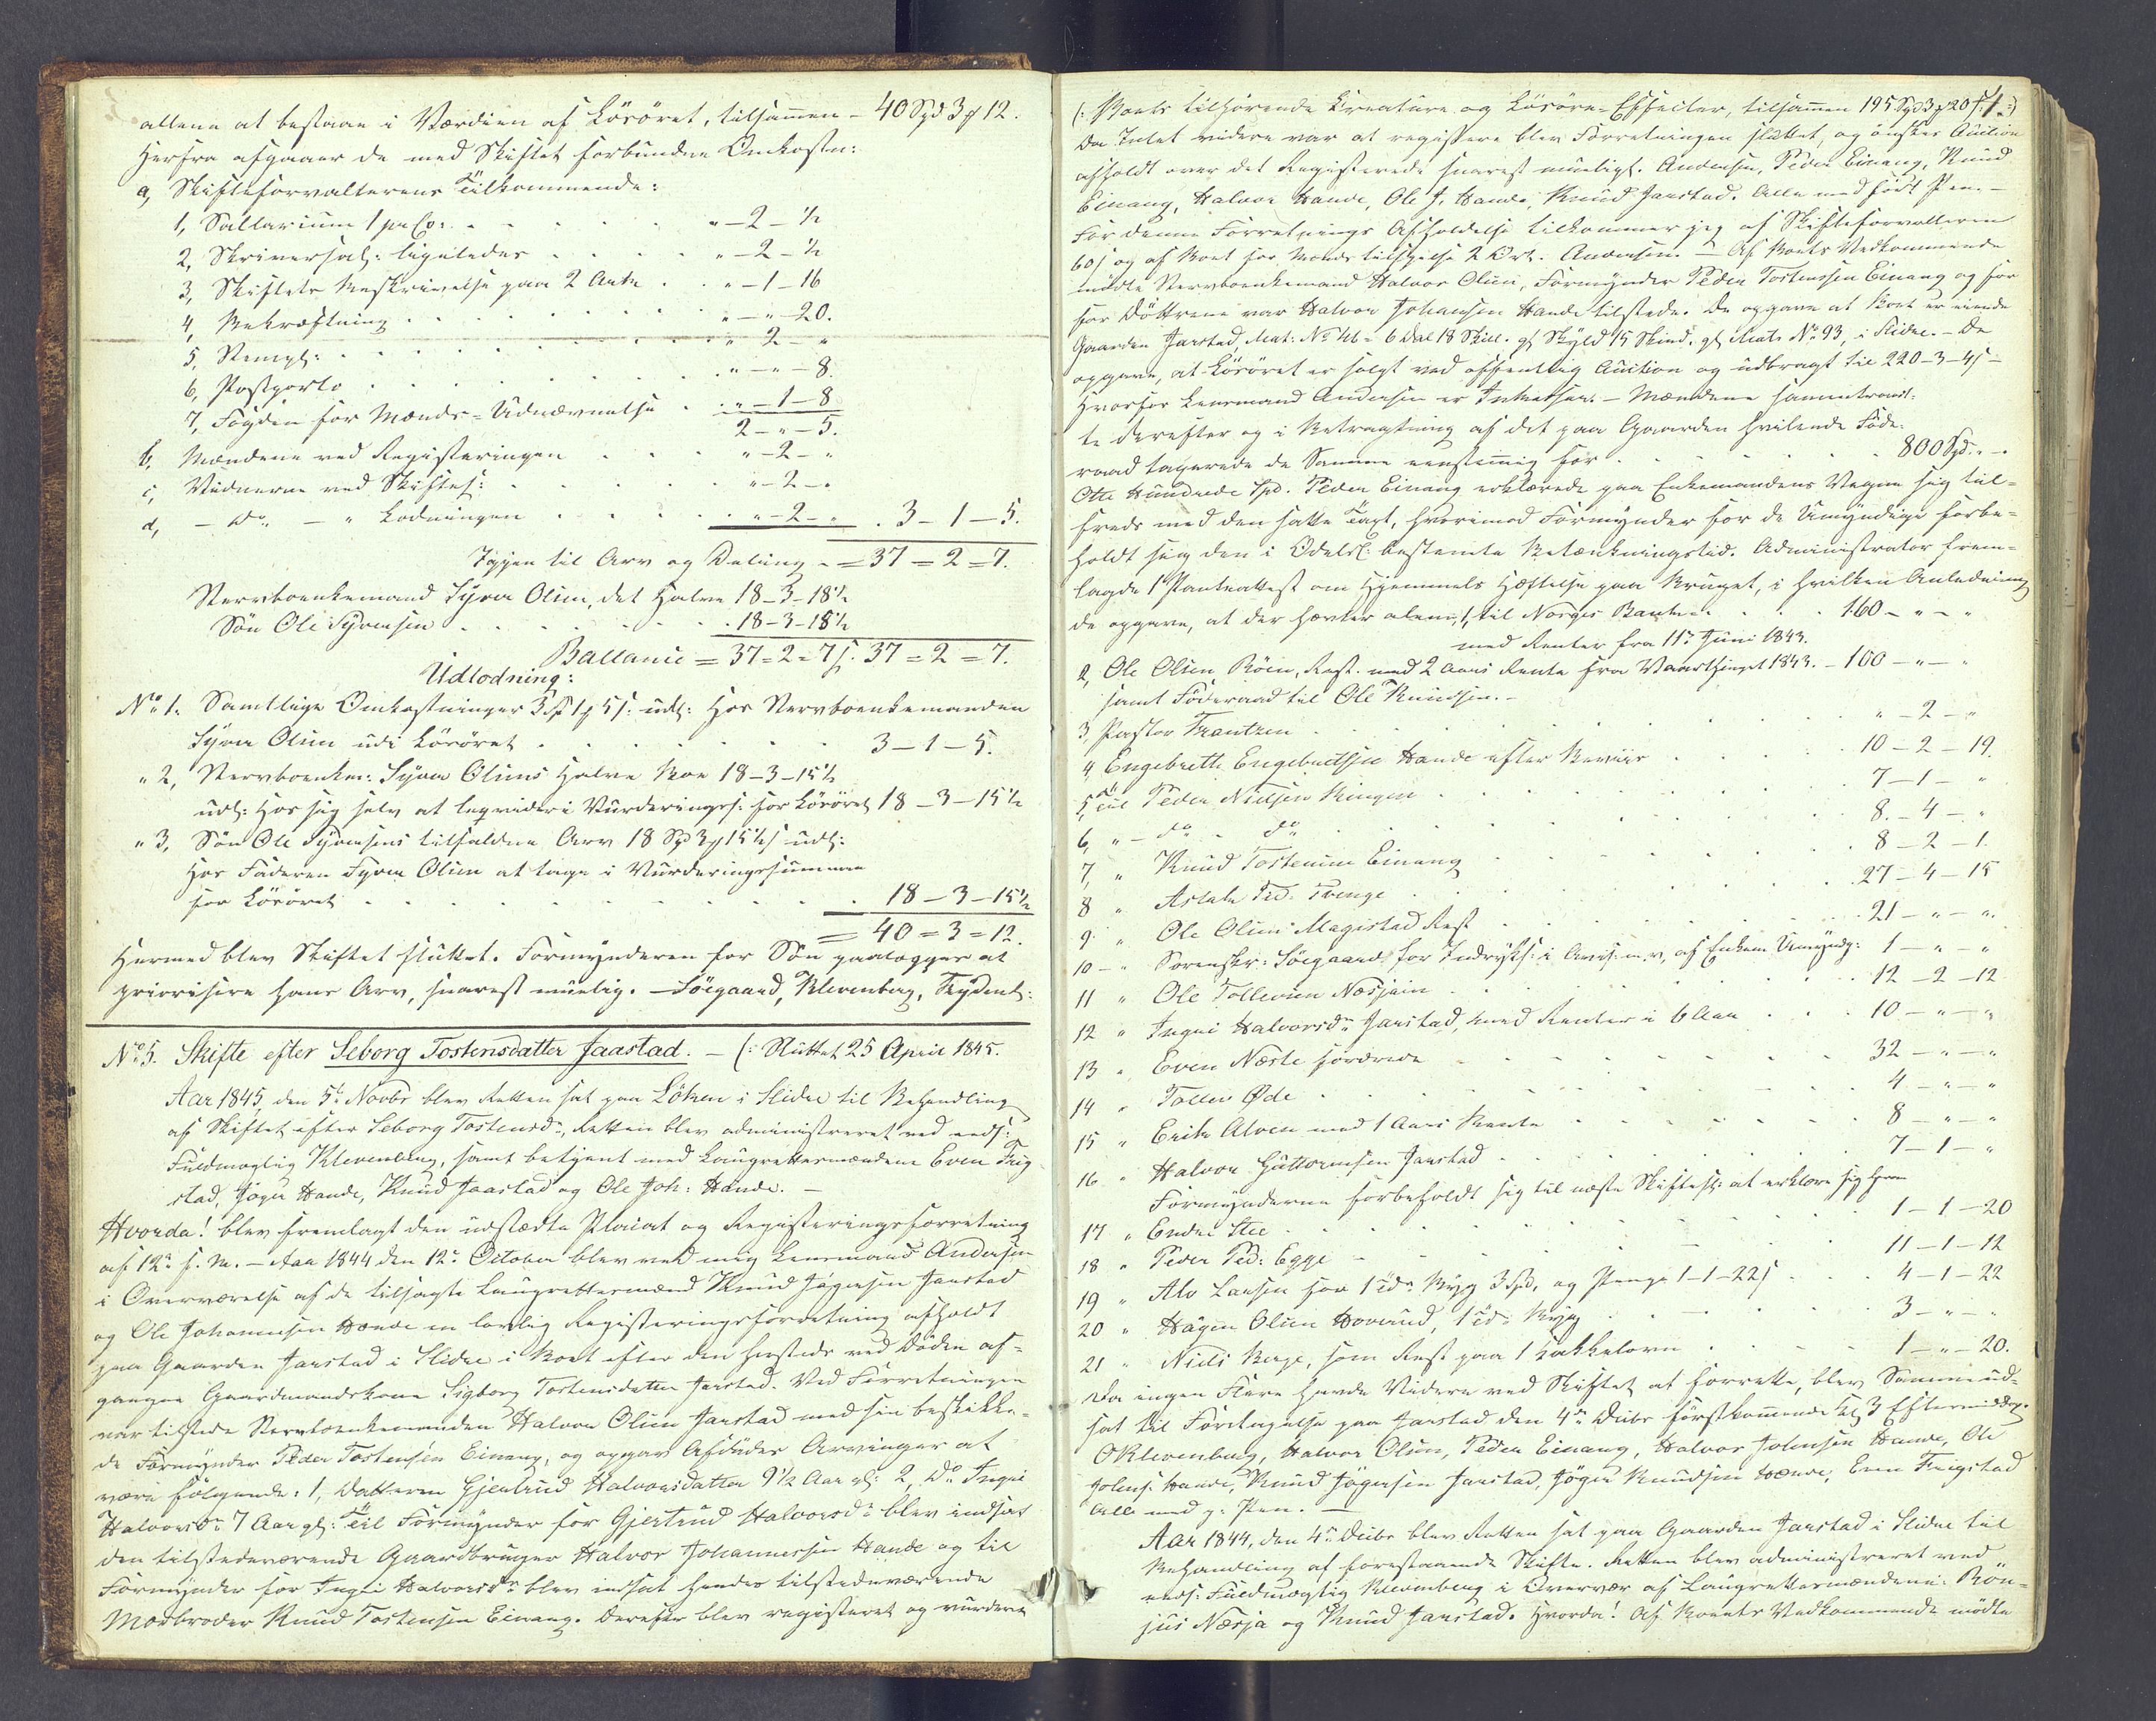 allene at bestaae i Værdien af Løsøret, tilsammen - 40 Spd 3 ₰ 12.
Herfra afgaaer de med Skiftet forbundne Omkostn:
a, Skifteforvalterens Tilkommende:
1, Sallarium 1 pr Co: . . . . . " - 2 - ½
2, Skriversal: ligeledes . . . . " - 2 - ½
3, Skiftets Beskrivelse paa 2 Ark . . " - 1 - 16
4, Bekræftning . . . . . " - " - 20.
5, Stempl: . . . . . " 2 - "
6, Postporto . . . . . " - " - 8.
7, Fogden for Mænds-Udnævnelse . . " - 1 - 8
2 - " - 5.
b, Mændene ved Registeringen . . . " - 2 - "
c, Vidnerne ved Skiftes: . . . " - 2 - "
d, - Do - " Lodningen . . . " - 2 - " . 3 - 1 - 5.
Igjen til Arv og Deling - = 37 = 2 = 7.
Stervboenkemand Syver Olsen, det Halve 18 - 3 - 15½
Søn Ole Syversen . . . . . 18 - 3 - 15½
Ballance = 37 = 2 = 7 s. 37 = 2 = 7.
Udlodning:
No 1. Samtlige Omkostninger 3 Spd 1 ₰ 5 s: udl: Hos Stervboenkemanden
Syver Olsen udi Løsøret . . . . . 3 - 1 - 5.
" 2, Stervboenkem: Syver Olsens Halve Boe 18 - 3 - 15½
udl: Hos sig selv at leqvidere i Vurderingss: for Løsøret 18 - 3 - 15½
" 3, Søn Ole Syversens tilfaldne Arv 18 Spd 3 ₰ 15½ s udl:
Hos Faderen Syver Olsen at tage i Vurderingssummen
for Løsøret . . . . . 18 - 3 - 15½
= 40 = 3 = 12.
Hermed blev Skiftet sluttet. Formynderen for Søn paalægges at
priorisere hans Arv, snarest muelig. - Söegaard, Klevenberg,
No 5. Skifte efter Seborg Tostensdatter Jaastad. - (: Sluttet 25 April 1845.
Aar 1845, den 5te Novbr blev Retten sat paa Løken i Slidre til Behandling
af Skiftet efter Seborg Tostensdr, Retten blev administreret ved eeds:
Fuldmægtig Klevenberg, samt betjent med Laugrettesmændene Even Frig-
stad, Jøger Hande, Knud Jaastad og Ole Joh: Hande. -
Hvorda! blev fremlagt den udstædte Placat og Registeringsforretning
af 12te f. M. - Aar 1844 den 12te October blev ved mig Lensmand Andersen
i Overværelse af de tilsagte Laugrettesmænd Knud Jøgersen Jaastad
og Ole Johannesen Hande en lovlig Registeringsforretning afholdt
paa Gaarden Jaastad i Slidre i Boet efter den hersteds ved Døden af-
gangne Gaardmandskone Sigborg Tostensdatter Jaastad. Ved Forretningen
var tilstede Stervboenkemanden Halvor Olsen Jaastad med sin beskikke-
de Formynder Peder Tostensen Einang, og opgav Afdødes Arvinger at
være følgende: 1, Datteren Gjertrud Halvorsdatter 9½ Aar gl: 2, Do Ingri
Halvorsdr 7 Aar gl: Til Formynder for Gjertrud Halvorsdr blev indsat
den tilstedeværende Gaardbruger Halvor Johannessen Hande og til
Formynder for Ingri Halvorsdr blev indsat hendes tilstedeværende
Morbroder Knud Tostensen Einang. Derefter blev registeret og vurderet
(: Boets tilhørende Kreature og Løsøre-Effecter, tilsammen 195 Spd 3 ₰ 20 s. 1. :)
Da Intet videre var at registere blev Forretningen sluttet, og ønskes Auction
afholdt over det Registerede snarest mueligt. Andersen, Peder Einang, Knud
Einang, Halvor Hande, Ole J. Hande, Knud Jaastad. Alle med ført Pen. -
For denne Forretnings Afholdelse tilkommer jeg af Skifteforvalteren
60 s og af Boet for Mænds tilsigelse 2 Ort. Andersen. - Af Boets Vedkommende
mødte Stervboenkemand Halvor Olsen, Formynder Peder Tostensen Einang og for
for Døttrene var Halvor Johansen Hande tilstede. De opgave at Boet er eiende
Gaarden Jaastad, Mat: No 46 - 6 Dal 18 Skill. gl Skyld 15 Skind. gl Matr No 93, i Slidre. - De
opgave, at Løsøret er solgt ved offentlig Auction og udbragt til 220 - 3 - 4 s -
Hvorfor Lensmand Andersen er Incassator. - Mændene sammentraad-
te derefter og i Betragtning af det paa Gaarden hvilende Føde-
raad taxerede de Samme eenstemmig for . . . . . 800 Spd " - "
Otte Hundrede Spd. Peder Einang erklærede paa Enkemandens Vegne sig til-
freds med den satte Taxt, hvorimod Formynder for de Umyndige forbe-
holdt sig den i Odelsl: bestemte Betænkningstid. Administrator frem-
lagde 1 Panteattest om Hjemmels Hæftelse paa Bruget, i hvilken Anledning
de opgave, at der hæfter alene, 1, til Norges Banken . . . 160 - " - "
med Renter fra 11te Juni 1843.
2, Ole Olsen Röen, Rest. med 2 Aars Rente fra Vaarthinget 1843. - 100 - " - "
samt Føderaad til Ole Knudsen. -
3, Pastor Frantzen . . . . . " - 2 - "
4, Engebreth Engebrethsen Hande efter Beviis . . . 10 - 2 - 19.
5, til Peder Nielsen Ringen . . . . . 7 - 1 - "
6, " - do - do . . . . . 8 - 4 - "
7, " Knud Tostensen Einang . . . . . 8 - 2 - 1.
8 " Aslak Ped: Trenge . . . . . 27 - 4 - 15
9 " Ole Olsen Magistad Rest . . . . . 21 - " - "
10 - " Sorenskr: Söegaard for Indryks: i Avis: m.v, af Enkem. Umyndg: 1 - " - "
11 " Ole Tollevsen Næsjain . . . . . 12 - 2 - 12
12 " Ingri Halvorsdr Jaastad, med Renter i 6 Aar . . . 10 - " - "
13 " Even Næste fordrede . . . . . 32 - " - "
14 " Tollev Øde . . . . . 4 - " - "
15 " Erik Alven med 1 Aars Rente . . . . . 8 - " - "
16 " Halvor Guttormsen Jaastad . . . . . 7 - 1 - "
Formynderne forbeholdt sig til næste Skiftes: at erklære sig herom
17 " Endre Stee . . . . . 1 - 1 - 20
18 " Peder Ped: Egge . . . . . 11 - 1 - 12
19 " Alv Larsen for 1 tde Byg 3 Spd, og Penge 1 - 1 - 22 s . . . 4 - 1 - 22
20 " Hagen Olsen Hovrud, 1 tde Byg . . . . . 3 - " - "
21 " Niels Berge, som Rest paa 1 Kakkelovn . . . . . 1 - " - 20.
Da ingen Flere havde Videre ved Skiftet at forrette, blev Samme ud-
sat til Foretagelse paa Jaastad den 4de Decbr førstkommende Kl 3 Eftermiddg.
O Klevenberg, Halvor Olsen, Peder Einang, Halvor Johnsen Hande, Ole
Johns: Hande, Knud Jøgersen Jaastad, Jøger Knudsen Hande, Even Frigstad
Alle med p: Pen. -
Aar 1844, den 4de Decbr blev Retten sat paa Gaarden Jaastad i Slidre til
Behandling af forestaaende Skifte. Retten blev administreret ved
eeds: Fuldmægtig Klevenberg i Overvær af Laugrettesmændene: Bon-
jus Næsja og Knud Jaastad. Hvorda! Af Boets Vedkommende mødte